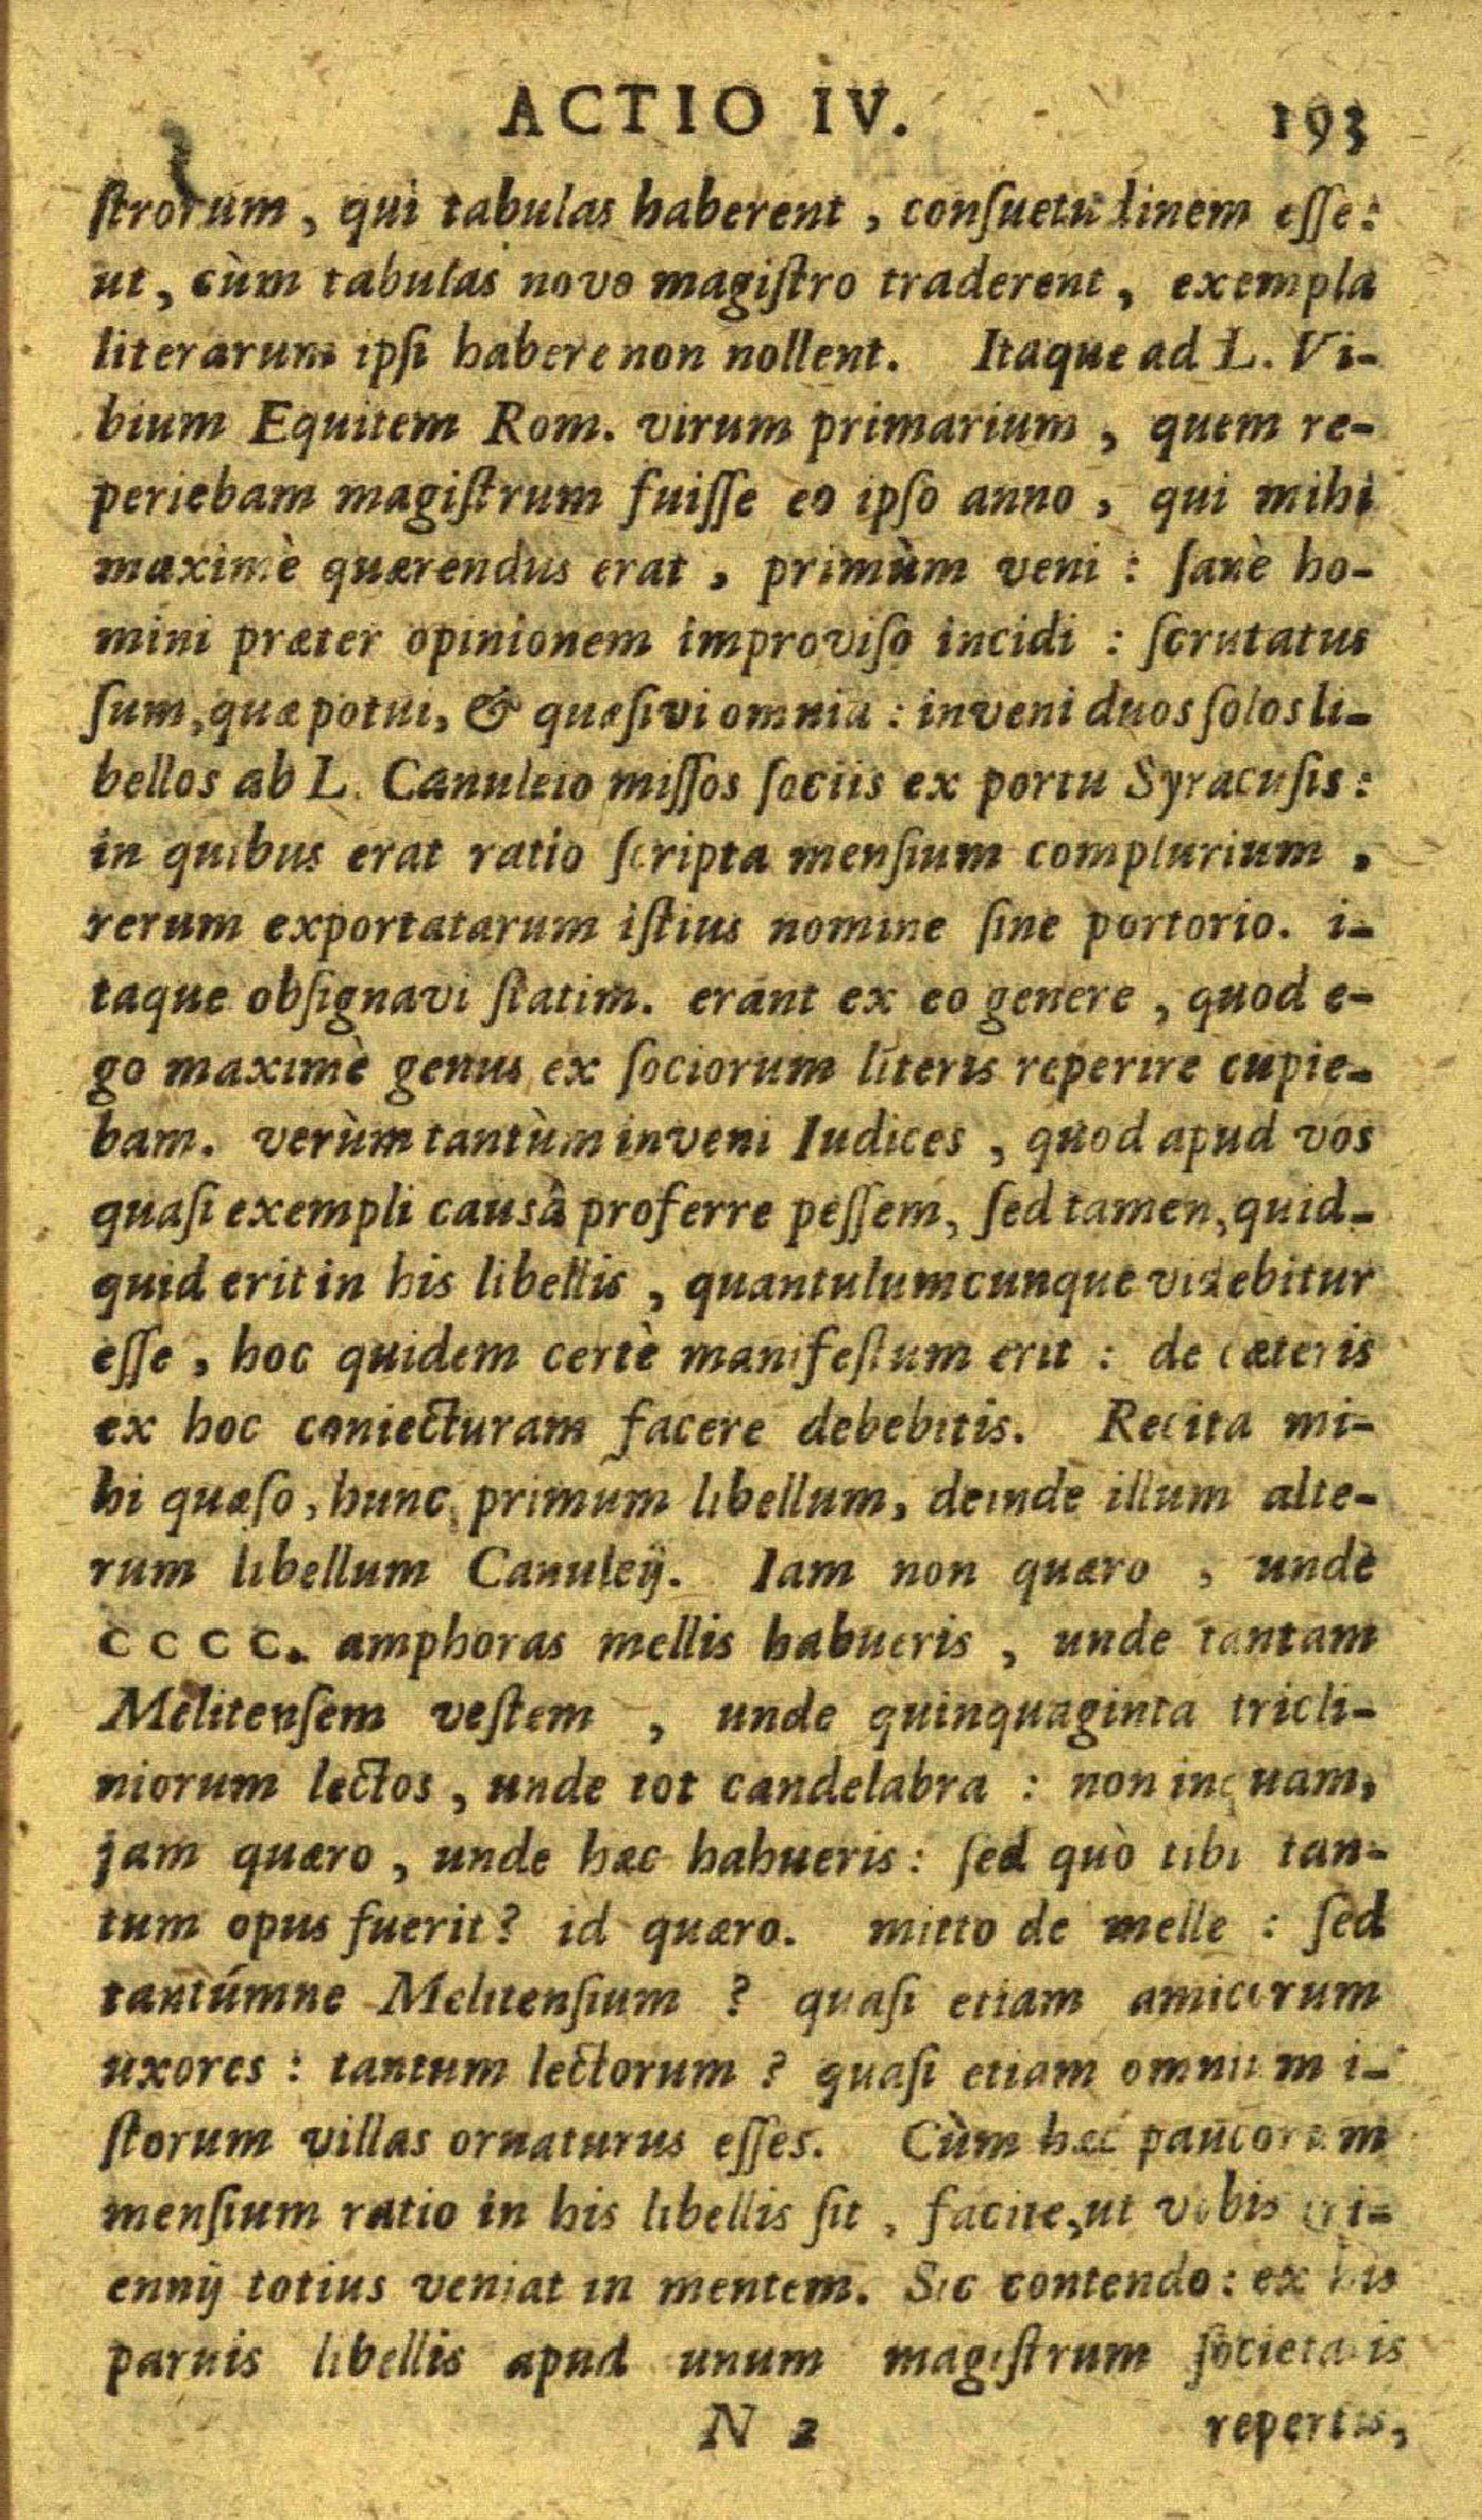 ACTIO IV. 193
ſtrorum, qui tabulas haberent, conſuetudinem eſſe:
ut, cùm tabulas novo magiſtro traderent, exempla
literarum ipſi habere non nollent. Itaque ad L. Vi-
bium Equitem Rom. virum primarium, quem re-
periebam magiſtrum fuiſſe eo ipſo anno, qui mihi
maximè quærendus erat, primùm veni: ſanè ho-
mini præter opinionem improviſo incidi: ſcrutatus
ſum, quæ potui, & quæſivi omnia: inveni duos ſolos li-
bellos ab L. Canuleio miſſos ſociis ex portu Syracuſis:
in quibus erat ratio ſcripta menſium complurium,
rerum exportatarum iſtius nomine ſine portorio. i-
taque obſignavi ſtatim. erant ex eo genere, quod e-
go maximè genus ex ſociorum literis reperire cupie-
bam. verùm tantùm inveni Iudices, quod apud vos
quaſi exempli causâ proferre peſſem, ſed tamen, quid-
quid erit in his libellis, quantulumcunque videbitur
eſſe, hoc quidem certè manifeſtum erit: de cæteris
ex hoc coniecturam facere debebitis. Recita mi-
hi quæſo, hunc primum libellum, deinde illum alte-
rum libellum Canuleij. Iam non quæro, unde
CCCC. amphoras mellis habueris, unde tantam
Melitenſem veſtem, unde quinquaginta tricli-
niorum lectos, unde tot candelabra: non inquam,
jam quæro, unde hæc habueris: ſed quò tibi tan-
tum opus fuerit? id quæro. mitto de melle: ſed
tantúmne Melitenſium? quaſi etiam amicorum
uxores: tantum lectorum? quaſi etiam omnium i-
ſtorum villas ornaturus eſſes. Cùm hæc paucorum
menſium ratio in his libellis ſit, facite, ut vobis tri-
ennij totius veniat in mentem. Sic contendo: ex his
parvis libellis apud unum magiſtrum ſocietatis
N 2 repertis,